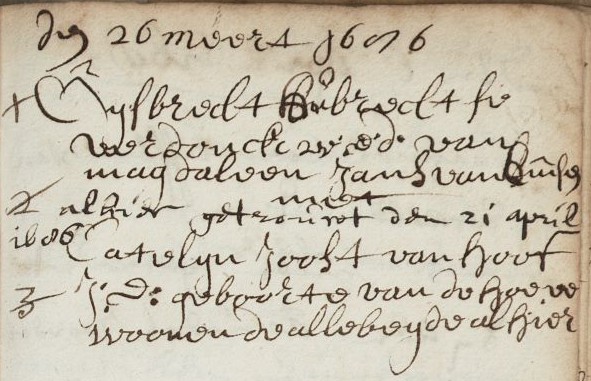 den 26 meert 1686
+ Gijsbrecht Hubrecht se
verdonck wed. van
magdaleen Jans van
met
2 alhier getrouwt den 21 april
1686 Catelijn Joost van hoof
3 J: d: geboorte van de hoeve
woonende alle beyde alhier